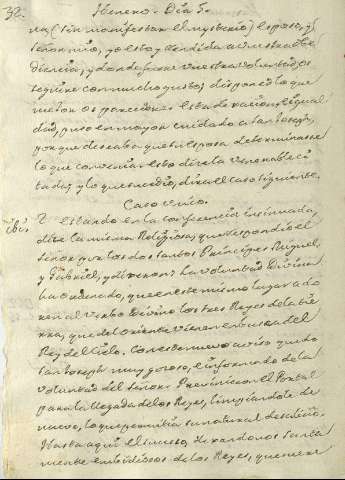 32. Henero. Dia 5.
na (sin manifestar el mysterio) esposo, y
señor mio, yo estoy rendida a vuestra obe
diencia, y donde fuere vuestra voluntad os
seguire con mucho gusto; disponed lo que
mejor os pareciere. Esta
dad, puso en mayor cuidado a San Joseph,
porque deseaba, que su esposa determinasse
lo que convenia. Esto dice la venerable ci
tada; y lo que sucedio, dirá el caso siguiente.
Caso unico.
2 Estando en la conferencia insinuada,
dice la misma Religiosa, que respondio el
Señor por los dos santos Principes Miguel,
y Gabriel, y dixeron: la voluntad Divina
ha ordenado, que en este mismo lugar ado
ren al Verbo Divino los tres Reyes de la tie
rra, que del Oriente vienen en busca del
Rey del Cielo. Con este nuevo aviso quedo
San Joseph muy gozoso, e informado de la
voluntad del Señor. Previnieron el Portal
para la llegada de los Reyes, limpiandole de
nuevo, lo que permitia su natural desaliño.
Hasta aqui el suceso, dexandonos santa
mente embidiosos de los Reyes, que mere